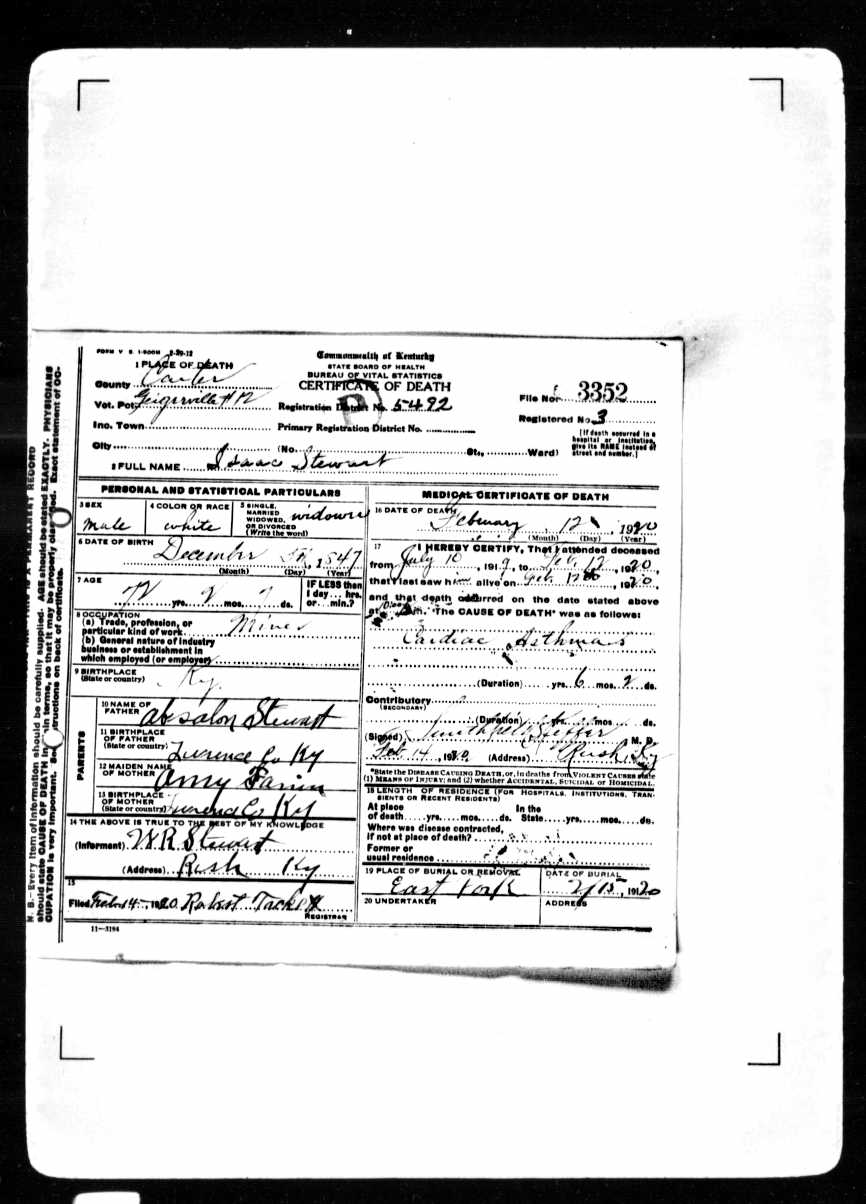 FORM V S 1-500M 2-29-12
Commonwealth of Kentucky
STATE BOARD OF HEALTH
BUREAU OF VITAL STATISTICS
CERTIFICATE OF DEATH
1 PLACE OF DEATH
County Carter
Vot. Pct. Geigerville #12
Inc. Town
City
Registration District No. 5492
Primary Registration District No.
(No. St., Ward)
File No. 3352
Registered No. 3
[If death occurred in a hospital or institution, give its NAME instead of street and number.]
2 FULL NAME Isaac Stewart
PERSONAL AND STATISTICAL PARTICULARS
3 SEX
male
4 COLOR OR RACE
white
5 SINGLE, MARRIED WIDOWED, OR DIVORCED (Write the word)
widowed
6 DATE OF BIRTH
December 5th, 1847
(Month) (Day) (Year)
7 AGE
72 yrs. 2 mos. 7 ds.
IF LESS than 1 day... hrs. or... min.?
8 OCCUPATION
(a) Trade, profession, or particular kind of work Miner
(b) General nature of industry business or establishment in which employed (or employer)
9 BIRTHPLACE
(State or country) Ky.
PARENTS
10 NAME OF FATHER Absalon Stewart
11 BIRTHPLACE OF FATHER (State or country) Lurence Co Ky
12 MAIDEN NAME OF MOTHER Amy
13 BIRTHPLACE OF MOTHER (State or country) Lurence Co Ky
14 THE ABOVE IS TRUE TO THE BEST OF MY KNOWLEDGE
(Informant) W R Stewart
(Address) Rush Ky
15
Filed Feb 14, 1920 Robert
REGISTRAR
11—3184
MEDICAL CERTIFICATE OF DEATH
16 DATE OF DEATH
February 12, 1920
(Month) (Day) (Year)
17 I HEREBY CERTIFY, That I attended deceased
from July 10, 1919, to Feb. 12, 1920,
that I last saw him alive on Feb. 12, 1920
and that death occurred on the date stated above
at m. The CAUSE OF DEATH* was as follows:
Cardiac Asthma
(Duration) yrs. 6 mos. 2 ds.
Contributory
(SECONDARY)
(Duration) yrs. mos. ds.
(Signed) M. D.
Feb 14, 1920 (Address) Rush, Ky
*State the DISEASE CAUSING DEATH, or, in deaths from VIOLENT CAUSES state
(1) MEANS OF INJURY; and (2) whether ACCIDENTAL, SUICIDAL or HOMICIDAL.
18 LENGTH OF RESIDENCE (FOR HOSPITALS, INSTITUTIONS, TRANSIENTS OR RECENT RESIDENTS)
At place of death yrs. mos. ds. In the State yrs. mos. ds.
Where was disease contracted,
if not at place of death?
Former or
usual residence
19 PLACE OF BURIAL OR REMOVAL
East Fork
DATE OF BURIAL
2/15, 1920
20 UNDERTAKER
ADDRESS
N. B.—Every item of information should be carefully supplied. AGE should be stated EXACTLY. PHYSICIANS
should state CAUSE OF DEATH in plain terms, so that it may be properly classified. Exact statement of OC-
CUPATION is very important. See instructions on back of certificate.